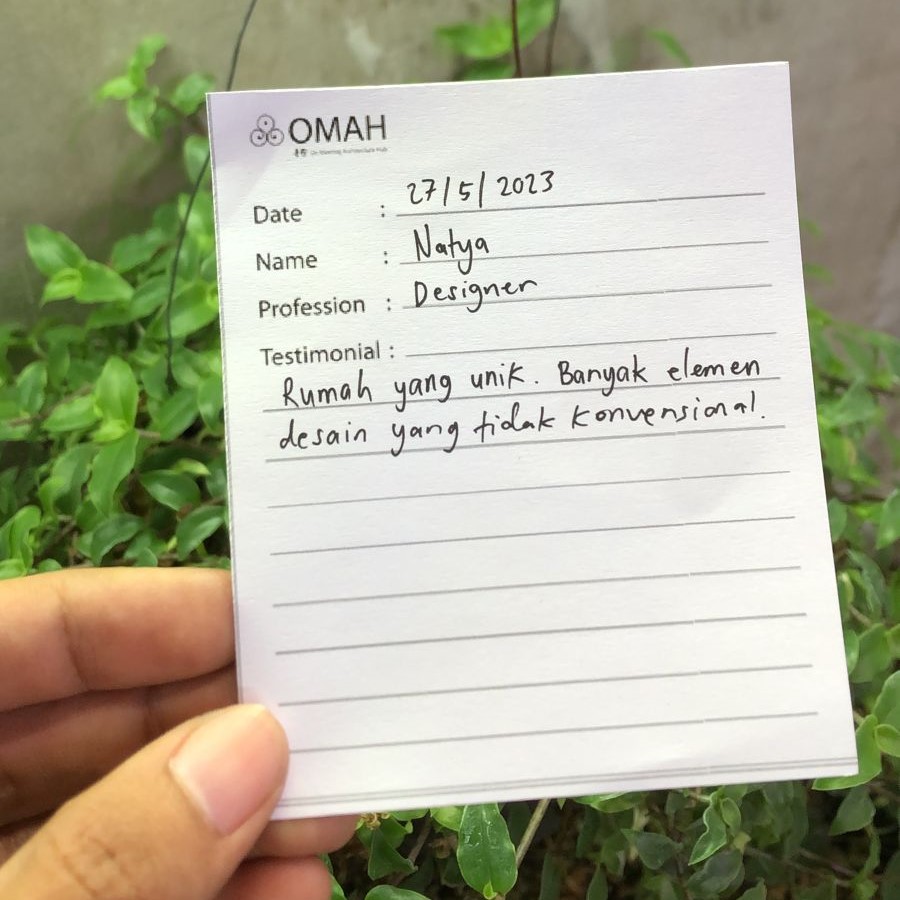 OMAH
Date : 27/5/2023
Name : Natya
Profession : Designer
Testimonial :
Rumah yang unik. Banyak elemen
desain yang tidak konvensional.